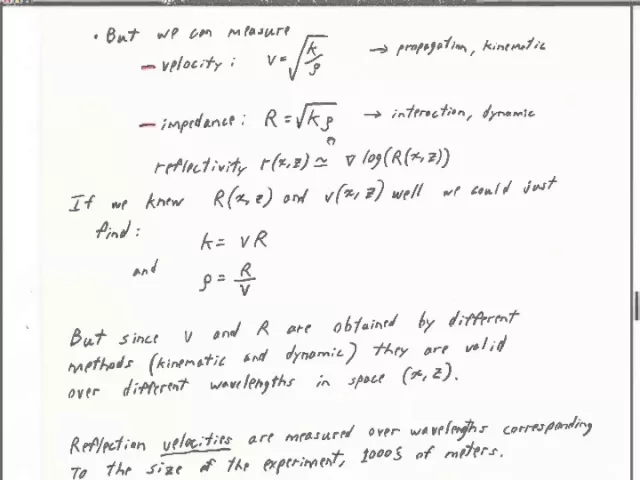 • But we can measure
– velocity: v = √(k/ρ) → propagation, kinematic
– impedance: R = √(kρ) → interaction, dynamic
reflectivity r(x,z) ≃ ∇ log(R(x,z))
If we knew R(x,z) and v(x,z) well we could just
find:
k = vR
and
ρ = R/v
But since v and R are obtained by different
methods (kinematic and dynamic) they are valid
over different wavelengths in space (x,z).
Reflection velocities are measured over wavelengths corresponding
To the size of the experiment, 1000s of meters.